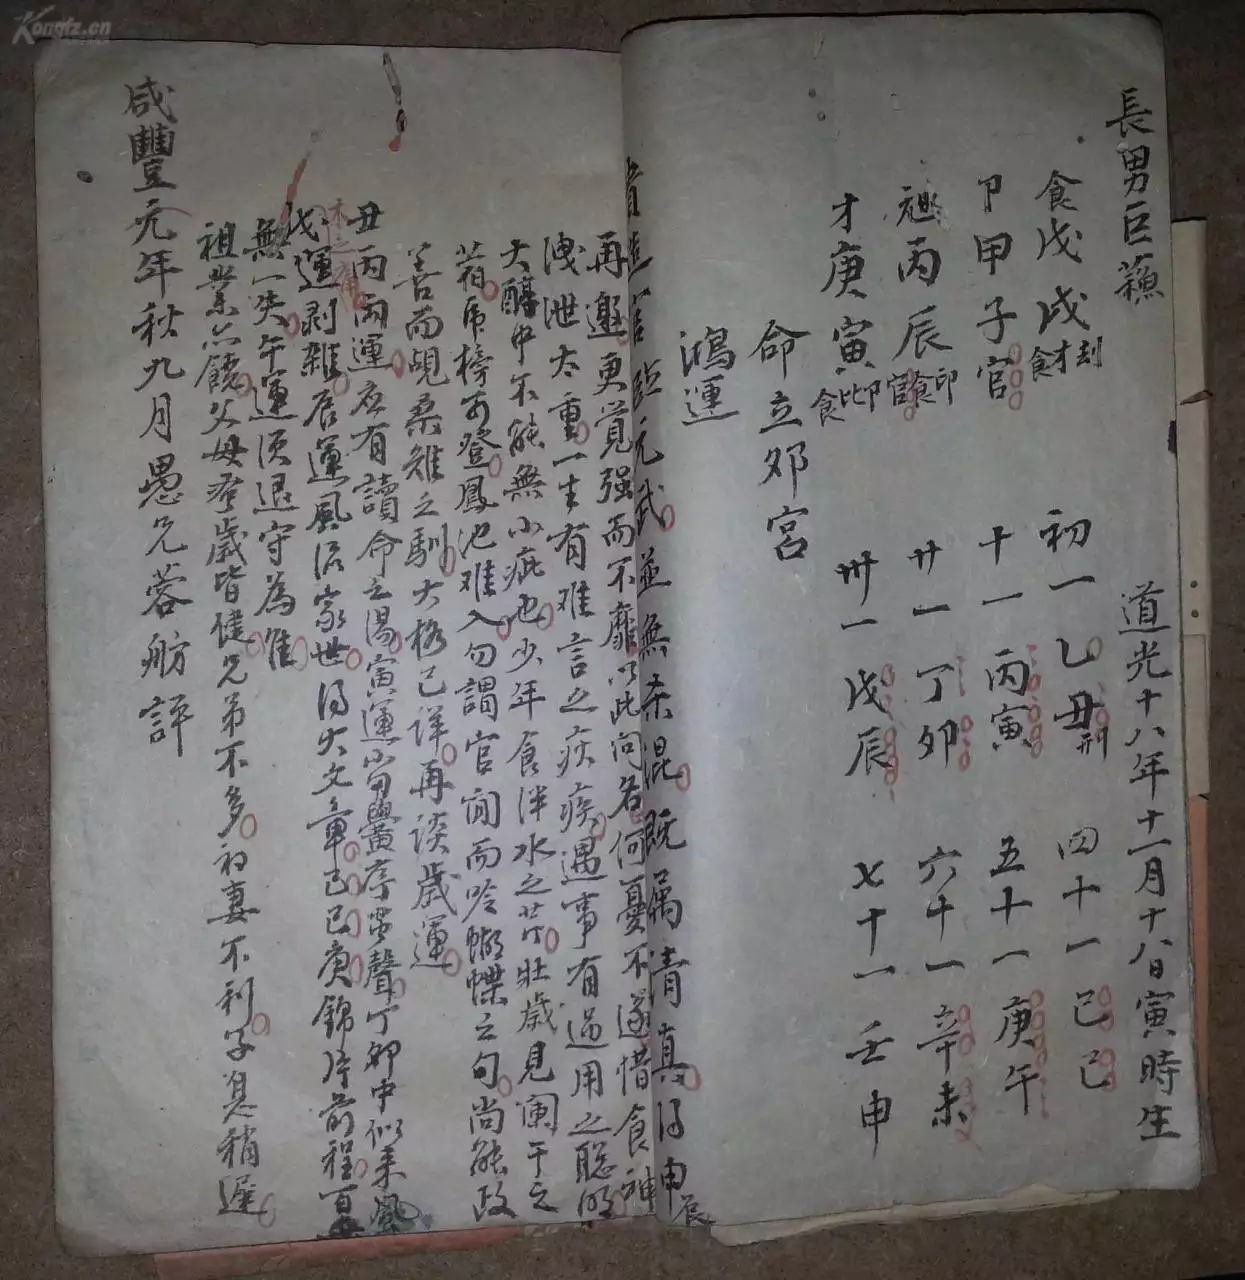 Kongfz.cn
長男巨蘓
道光十八年十一月十八日寅時生
食戊戌食才刦
卩甲子官
丙辰官食印
才庚寅食比印
初一乙丑刑
十一丙寅
廿一丁夘
卅一戊辰
四十一己巳
五十一庚午
六十一辛未
七十一壬申
命立夘宮
鴻運
貴造官臨元武並無夲混既屬清真得申辰
再邀更覺强而不靡以此问名何憂不遂惜食神
洩泄太重一生有难言之疾疾遇事有過用之聡明
大醇中不能無小疵也少年食泮水之芹壮歳見阑干之
蓿虎榜可登鳳池难入勿謂官闲而吟蝴蝶之句尚能政
善而覘桑雉之馴大格已详再谈歳運
丑丙兩運应有讀命之湯寅運黌序蜚聲丁夘中似乘風
木之痛
戊運剥雜辰運風活家世得大文章己巳庚錦片前程
無一失午運须退守為佳
祖業亦饒父母耋歳皆健兄弟不多初妻不利子息稍遲
咸豐元年秋九月愚兄蓉舫評